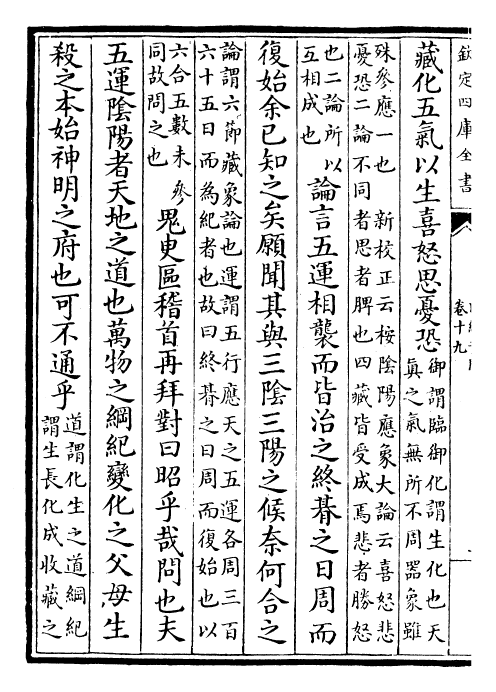 欽定四庫全書
卷十九
藏化五氣以生喜怒思憂恐
御謂臨御化謂生化也天
真之氣無所不周器象雖
殊參應一也　新校正云按陰陽應象大論云喜怒悲
憂恐二論不同者思者脾也四藏皆受成焉悲者勝怒
也二論所以
互相成也
論言五運相襲而皆治之終朞之日周而
復始余已知之矣願聞其與三陰三陽之候奈何合之
論謂六節藏象論也運謂五行應天之五運各周三百
六十五日而為紀者也故曰終朞之日周而復始也以
六合五數未參
同故問之也
鬼臾區稽首再拜對曰昭乎哉問也夫
五運陰陽者天地之道也萬物之綱紀變化之父母生
殺之本始神明之府也可不通乎
道謂化生之道綱紀
謂生長化成收藏之